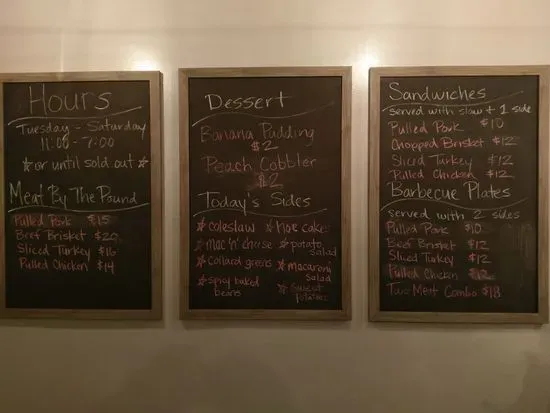 Hours
Tuesday - Saturday
11:00 - 7:00
*or until sold out*
Meat By The Pound
Pulled Pork $15
Beef Brisket $20
Sliced Turkey $16
Pulled Chicken $14
Dessert
Banana Pudding
$2
Peach Cobbler
$2
Today's Sides
* coleslaw
* mac 'n' cheese
* collard greens
* spicy baked
beans
* hoe cake
* potato
salad
* macaroni
salad
* sweet
potatoes
Sandwiches
served with slaw + 1 side
Pulled Pork $10
Chopped Brisket $12
Sliced Turkey $12
Pulled Chicken $12
Barbecue Plates
served with 2 sides
Pulled Pork $10
Beef Brisket $12
Sliced Turkey $12
Pulled Chicken $12
Two Meat Combo $18